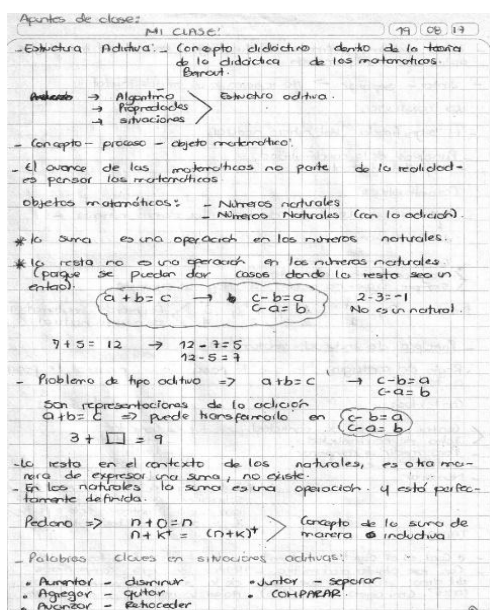 Apuntes de clase:
MI CLASE: 19 08 17
- Estructura Aditiva: - Concepto didáctico dentro de la teoría
de la didáctica de las matemáticas.
→ Algoritmo
→ Propiedades Estructura aditiva.
→ situaciones
- Concepto - proceso - objeto matemático.
- El avance de las matemáticas no parte de la realidad -
es pensar las matemáticas
objetos matemáticos: - Números naturales
- Números Naturales (con la adición).
* la suma es una operación en los números naturales.
* la resta no es una operación en los números naturales.
(porque se pueden dar casos donde la resta sea un
entero).
a + b = c → c - b = a 2 - 3 = -1
c - a = b. No es un natural.
7 + 5 = 12 → 12 - 7 = 5
12 - 5 = 7
- Problema de tipo aditivo => a + b = c → c - b = a
c - a = b
Son representaciones de la adición
a + b = c => puede transformarlo en c - b = a
c - a = b
3 + □ = 9
- La resta en el contexto de los naturales, es otra ma-
nera de expresar una suma, no existe.
- En los naturales la suma es una operación y está perfec-
tamente definida.
Peano => n + 0 = n Concepto de la suma de
n + k⁺ = (n+k)⁺ manera inductiva
- Palabras claves en situaciones aditivas:
• Aumentar - disminuir • Juntar - separar
• Agregar - quitar • COMPARAR.
• Avanzar - Retroceder